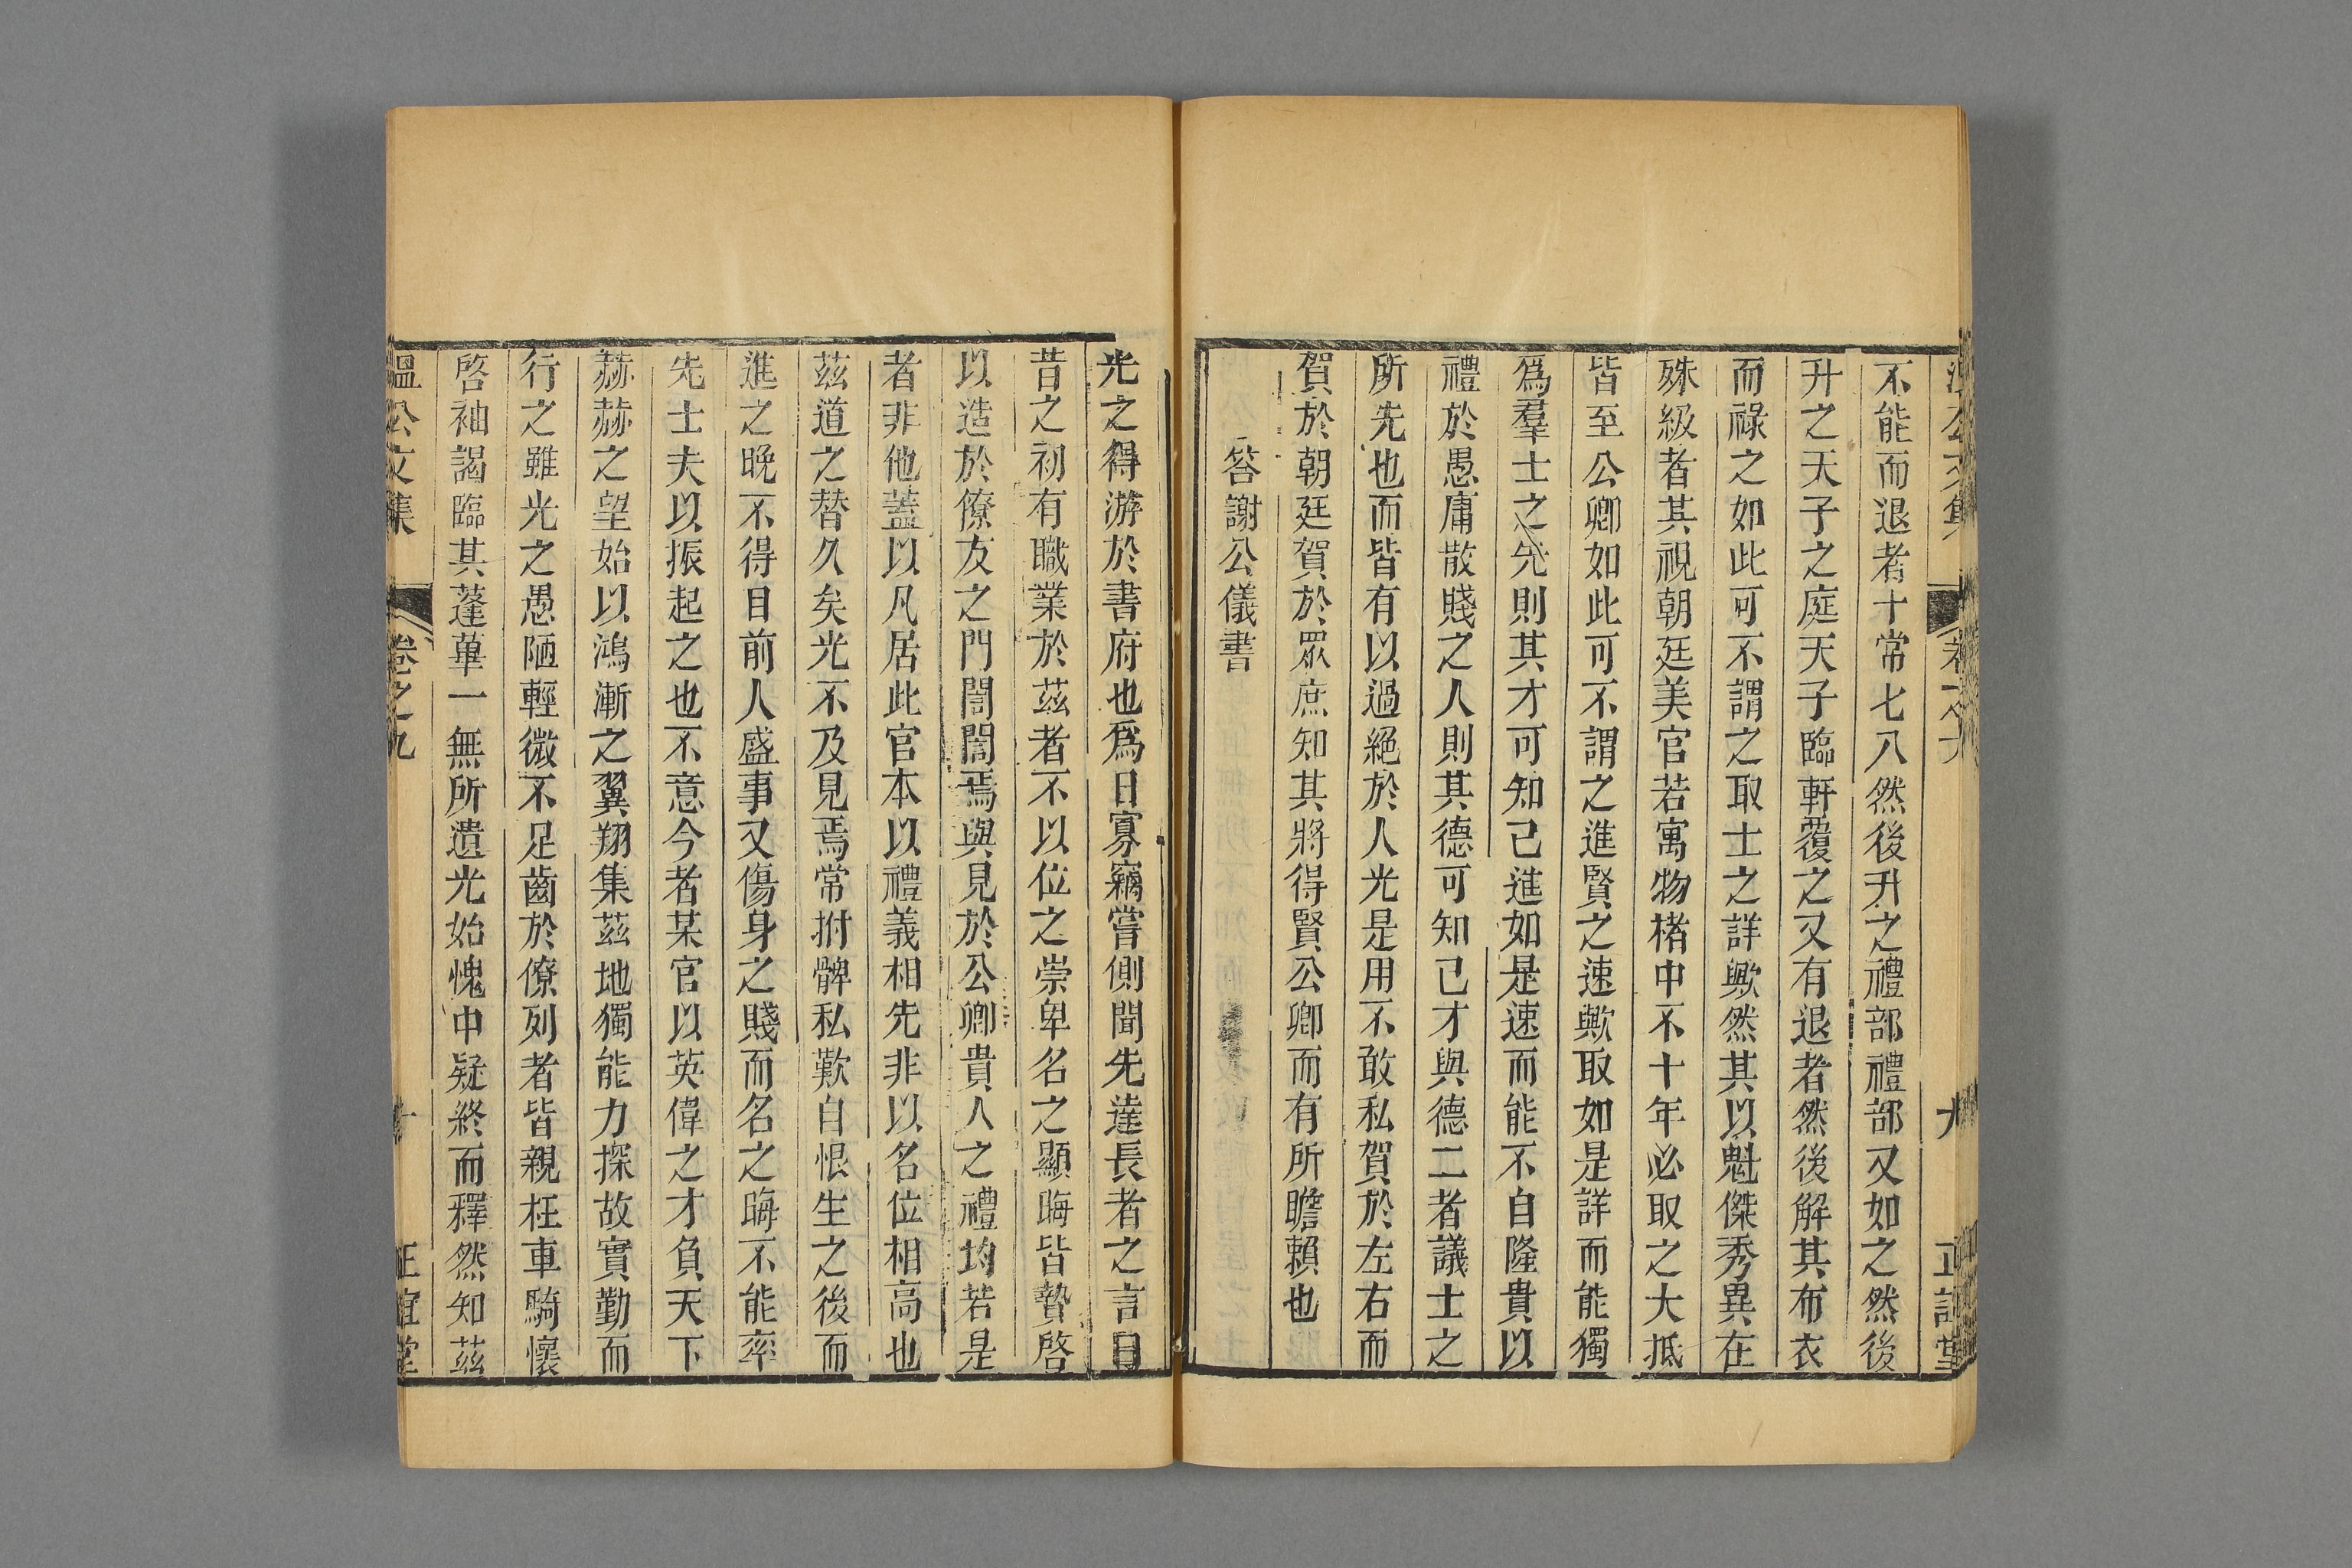 不能而退者十常七八然後升之禮部禮部又如之然後
升之天子之庭天子臨軒覆之又有退者然後解其布衣
而祿之如此可不謂之取士之詳歟然其以魁傑秀異在
殊級者其視朝廷美官若寓物楮中不十年必取之大抵
皆至公卿如此可不謂之進賢之速歟取如是詳而能獨
爲羣士之先則其才可知已進如是速而能不自隆貴以
禮於愚庸散賤之人則其德可知已才與德二者議士之
所先也而皆有以過絕於人光是用不敢私賀於左右而
賀於朝廷賀於眾庶知其將得賢公卿而有所瞻賴也
答謝公儀書
光之得游於書府也爲日寡竊嘗側聞先達長者之言曰
昔之初有職業於茲者不以位之崇卑名之顯晦皆贄啓
以造於僚友之門誾誾焉與見於公卿貴人之禮均若是
者非他蓋以凡居此官本以禮義相先非以名位相高也
茲道之替久矣光不及見焉常拊髀私歎自恨生之後而
進之晚不得目前人盛事又傷身之賤而名之晦不能率
先士夫以振起之也不意今者某官以英偉之才負天下
赫赫之望始以鴻漸之翼翔集茲地獨能力探故實勤而
行之雖光之愚陋輕微不足齒於僚列者皆親枉車騎懷
啓袖謁臨其蓬蓽一無所遺光始愧中疑終而釋然知茲
溫公文集 卷之九 十 正誼堂